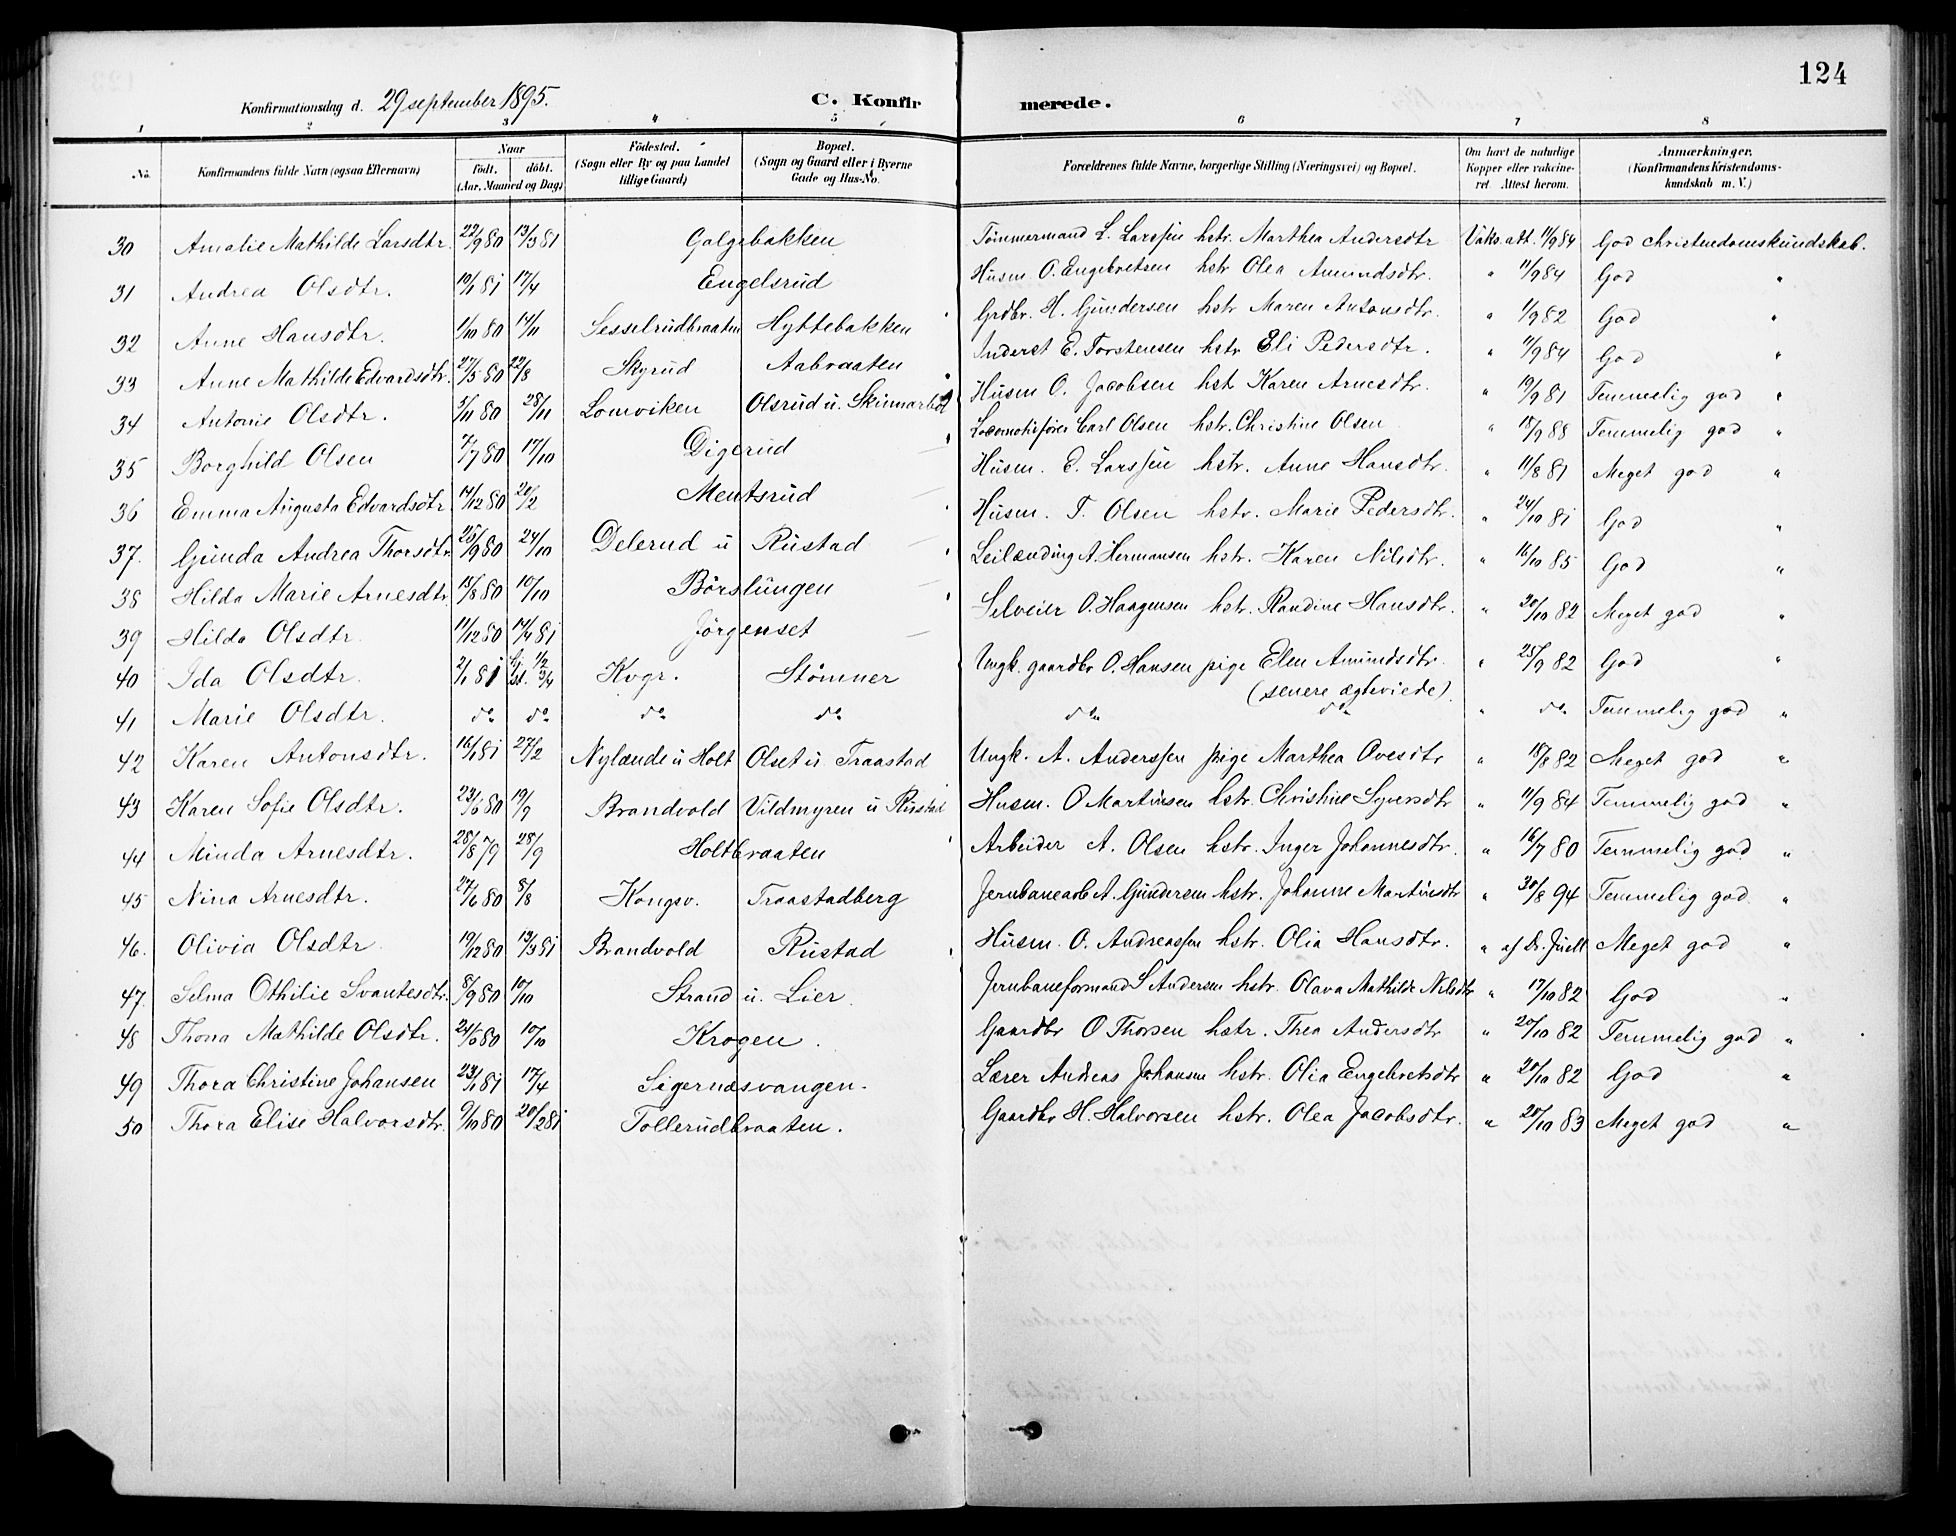 124
Konfirmationsdag d. 29 september 1895. C. Konfir merede.
1 2 3 4 5 6 7 8
No. Konfirmandens fulde Navn (ogsaa Efternavn) Naar født. døbt. (Aar, Maaned og Dag) Fødested. (Sogn eller By og paa Landet tillige Gaard) Bopæl. (Sogn og Gaard eller i Byerne Gade og Hus-No. Forældrenes fulde Navne, borgerlige Stilling (Næringsvei) og Bopæl. Om havt de naturlige Kopper eller vakcineret. Attest herom. Anmærkninger. (Konfirmandens Kristendomskundskab m. V.)
30 Amalie Mathilde Larsdtr. 22/9 80 13/3 81 Galgebakken Tømmermand L. Larssen hstr. Marthea Andersdtr Vaks. att. 11/9 84 God christendomskundskab.
31 Andrea Olsdtr. 19/1 81 17/4 Engelsrud Husm O. Engebretsen hstr Olea Amundsdtr. " 11/9 84 God "
32 Anne Hansdtr. 1/10 80 14/11 Sesselrudbraaten Hyttebakken Grdbr. H. Gundersen hstr Maren Antonsdtr. " 1/9 82 God "
33 Anne Mathilde Edvardsdtr. 27/5 80 22/8 Skyrud Aabraaten Inderst E. Torstensen hstr Eli Pedersdtr. " 11/9 84 God "
34 Antonie Olsdtr. 5/11 80 28/11 Lomviken Olsrud u. Skinnarbøl Husm O. Jacobsen hstr Karen Arnesdtr. " 19/9 81 Temmelig god "
35 Borghild Olsen 7/7 80 17/10 Digerud Locomotivfører Carl Olsen hstr. Christine Olsen " 18/9 88 Temmelig god "
36 Emma Augusta Edvardsdtr 14/12 80 20/2 Mentsrud Husm. E. Larssen hstr. Anne Hansdtr. " 11/8 81 Meget god "
37. Gunda Andrea Thorsdtr. 25/9 80 24/10 Delerud u Rustad Husm. T. Olsen hstr. Marie Pedersdtr. " 24/10 81 God "
38 Hilda Marie Arnesdtr. 13/8 80 10/10 Børslungen Leilænding A. Hermansen hstr. Karen Nilsdtr. " 16/10 85 God "
39 Hilda Olsdtr. 11/12 80 14/4 81 Jørgenset Selveier O. Haagensen hstr. Randine Hansdtr. " 20/10 82 Meget god "
40 Ida Olsdtr. 2/1 81 1/2 3/4 Kvgr. Stømner Ungk. gaardbr O. Hansen pige Elen Amundsdtr. (senere ægteviede) " 25/9 82 God "
41 Marie Olsdtr. do do do do do do " do Temmelig god "
42 Karen Antonsdtr. 16/1 81 27/2 Nylænde u Holt Olset u. Traastad Ungk. A. Anderssen pige Marthea Ovesdtr " 18/8 82 Meget god "
43 Karen Sofie Olsdtr. 23/6 80 19/9 Brandvold Vildmyren u Rustad Husm. O Martinsen hstr. Christine Syversdtr " 11/9 84 Temmelig god "
44 Minda Arnesdtr. 28/8 79 28/9 Holtbraaten Arbeider A. Olsen hstr. Inger Johannesdtr. " 16/7 80 Temmelig god "
45 Nina Arnesdtr. 24/6 80 8/8 Kongsv. Traastadberg Jernbanearb A. Gundersen hstr. Johanne Martinsdtr " 30/8 94 Temmelig god "
46. Olivia Olsdtr. 19/12 80 13/3 81 Brandvold Rustad Husm. O. Andreassen hstr. Olia Hansdtr. " af Dr. Juell Meget god "
47. Selma Othilie Svantesdtr. 8/9 80 10/10 Strand u. Lier. Jernbaneformand S Andersen hstr. Olava Mathilde Nilsdtr " 17/10 82 God "
48 Thona Mathilde Olsdtr. 24/5 80 10/10 Krogen. Gaardbr O Thorsen hstr. Thea Andersdtr " 20/10 82 Temmelig god "
49 Thora Christine Johansen 23/1 81 17/4 Sigernæsvangen. Lærer Andreas Johansen hstr. Olia Engebretsdtr " 20/10 82 God "
50 Thora Elise Halvorsdtr. 9/10 80 20/2 81 Tollerudbraaten. Gaardbr H. Halvorsen hstr. Olea Jacobsdtr. " 20/10 83 Meget god "